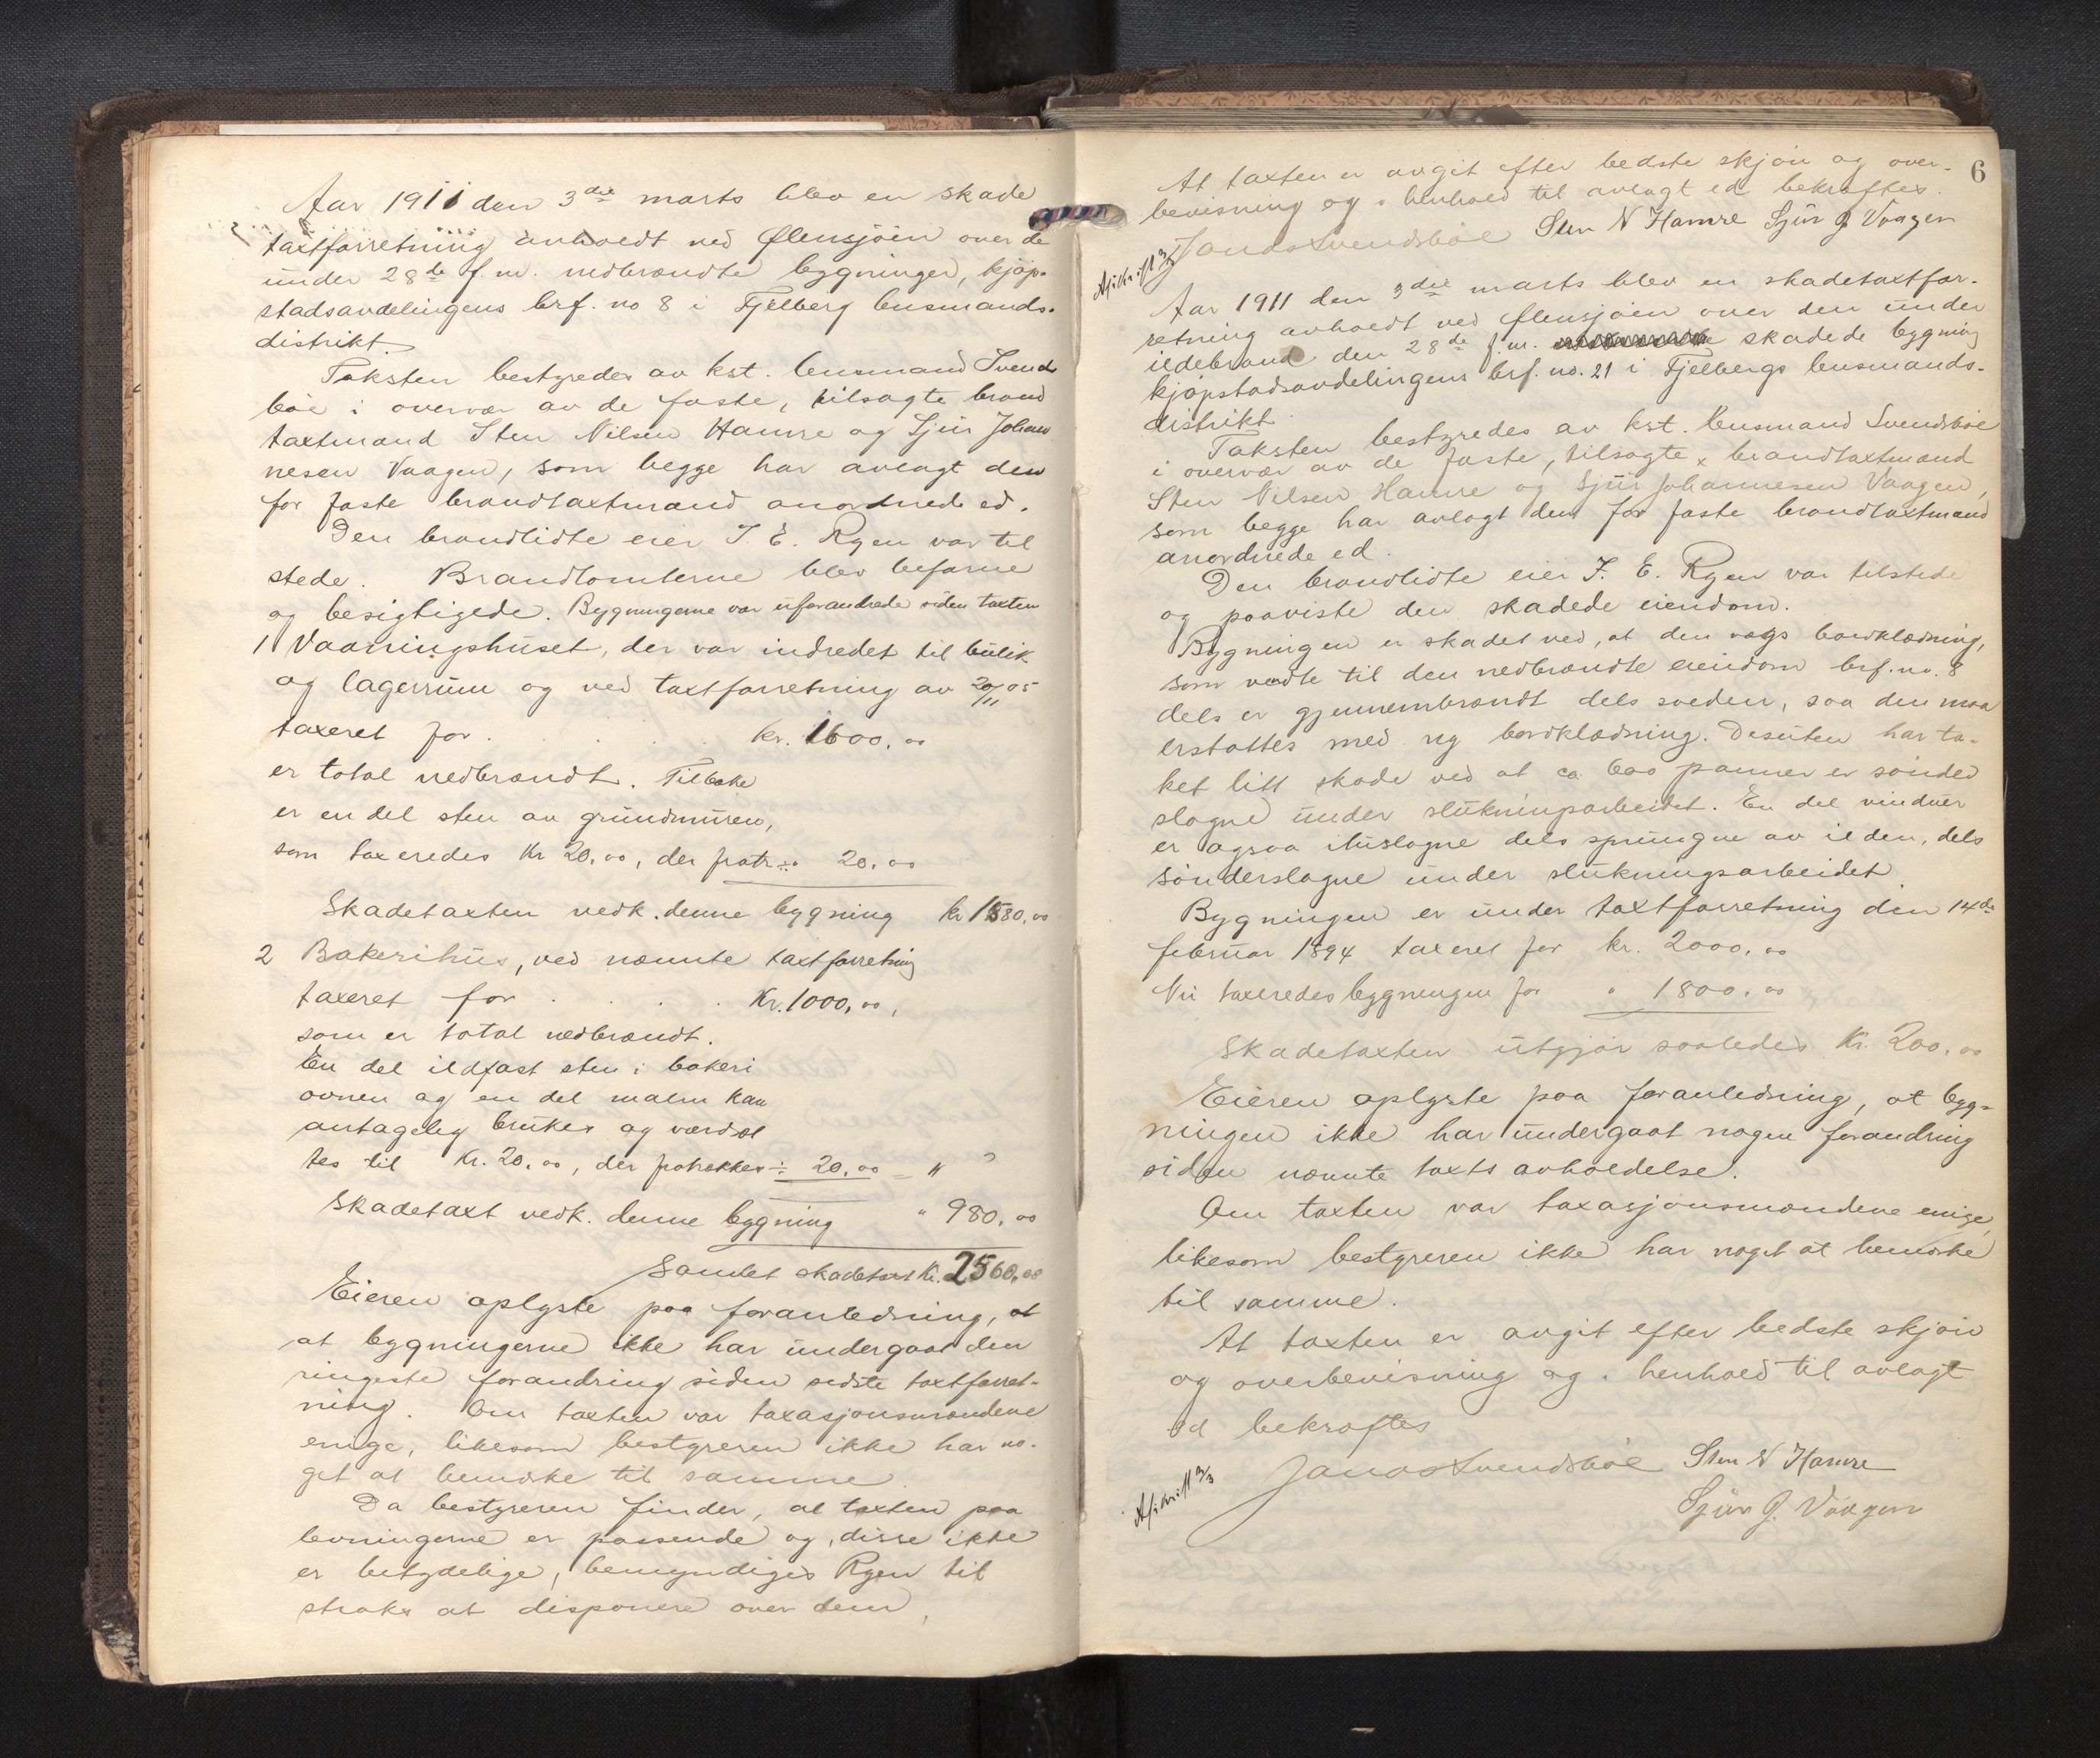 Aar 1911 den 3die marts blev en skade
taxtforretning avholdt ved Ølensjöen over de
under 28de f. m. nedbrændte bygninger, kjöp-
stadsavdelingens brf. no 8 i Fjelberg lensmands-
distrikt.
Taksten bestyredes av kst. lensmand Svends
böe i overvær av de faste, tilsagte brand
taxtmænd Sten Nilsen Hamre og Sjur Johan
nesen Vaagen, som begge har avlagt den
for faste brandtaxtmænd anordnede ed.
Den brandlidte eier J. E. Rgen var til
stede. Brandtomterne blev befarne
og besigtigede. Bygningerne var uforandrede siden taxten
1 Vaaningshuset, der var indredet til butik
og lagerrum og ved taxtforretning av 20/11 05
taxeret for . . . . kr. 1600,00
er total nedbrændt. Tilbake
er en del sten av grundmuren,
som taxeredes Kr 20,00, der fratr ÷ 20.00
Skadetaxten vedk. denne bygning kr 1580,00
2 Bakerihus, ved nævnte taxtforretning
taxeret for . . . . Kr. 1000,00,
som er total nedbrændt.
En del ildfast sten i bakeri
ovnen og en del malm kan
antagelig brukes og værdsæt
tes til Kr. 20,00, der fratrækkes ÷ 20,00 = "
Skadetaxt vedk. denne bygning " 980,00
Samlet skadetaxt Kr. 2560,00
Eieren oplyste paa foranledning, at
at bygningerne ikke har undergaat den
ringeste forandring siden sidste taxtforret-
ning. Om taxten var taxasjonsmændene
enige, likesom bestyreren ikke har no-
get at bemerke til samme.
Da bestyreren finder, at taxten paa
levningerne er passende og, disse ikke
er betydelige, bemyndiges Rgen til
straks at disponere over dem,
6
At taxten er avgit efter bedste skjön og over-
bevisning og i henhold til avlagt ed bekræftes.
Jonas Svendsböe Sten N Hamre Sjur J Vaagen
Afskrift 3/3
Aar 1911 den 3die marts blev en skadetaxtfor-
retning avholdt ved Ølensjöen over den under
ildebrand den 28de f. m. skadede bygning
kjöpstadsavdelingens brf. no. 21 i Fjelbergs lensmands-
distrikt.
Taksten bestyredes av kst. lensmand Svendsböe
i overvær av de faste, tilsagte brandtaxtmænd
Sten Nilsen Hamre og Sjur Johannesen Vaagen,
som begge har avlagt den for faste brandtaxtmænd
anordnede ed.
Den brandlidte eier J. E. Rgen var tilstede
og paaviste den skadede eiendom.
Bygningen er skadet ved, at den vægs bordklædning,
som vendte til den nedbrændte eiendom brf. no. 8
dels er gjennembrændt dels sveden, saa den maa
erstattes med ny bordklædning. Desuten har ta-
ket litt skade ved at ca. 600 panner er sönder
slagne under slukningarbeidet. En del vinduer
er ogsaa ituslagne dels sprungne av ilden, dels
sönderslagne under slukningsarbeidet.
Bygningen er under taxtforretning den 14de
februar 1894 taxeret for kr. 2000,00
Nu taxeredes bygningen for " 1800,00
Skadetaxten utgjör saaledes Kr. 200,00
Eieren oplyste paa foranledning, at byg-
ningen ikke har undergaat nogen forandring
siden nævnte taxts avholdelse.
Om taxten var taxasjonsmændene enige,
likesom bestyreren ikke har noget at bemerke
til samme.
At taxten er avgit efter bedste skjön
og overbevisning og i henhold til avlagt
ed bekræftes
Jonas Svendsböe Sten N Hamre
Afskrift 3/3
Sjur J. Vaagen